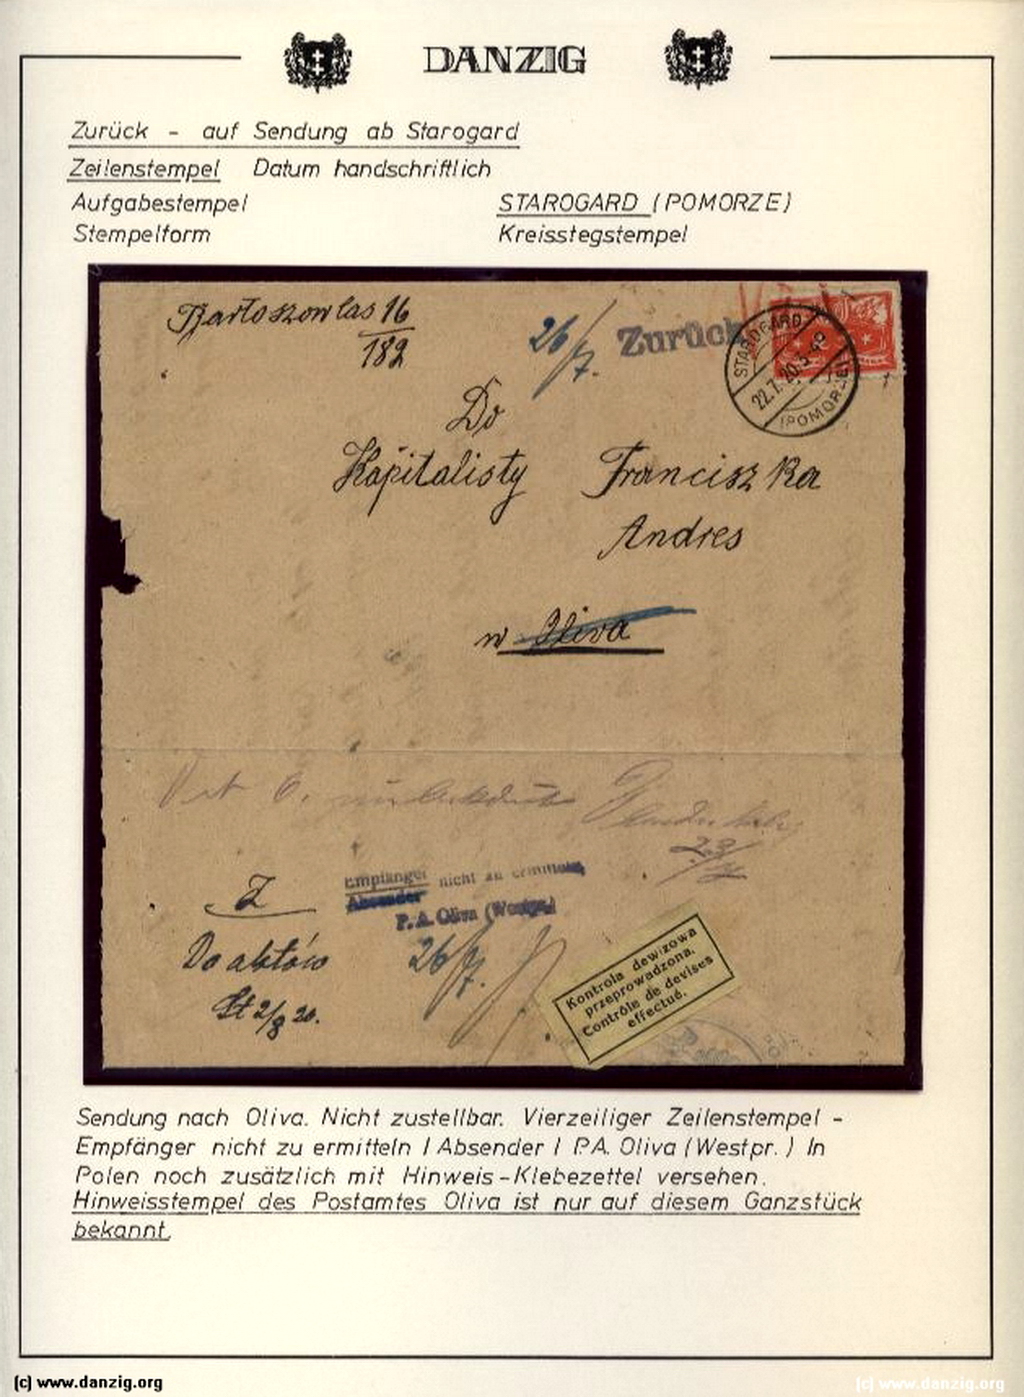 DANZIG
Zurück - auf Sendung ab Starogard
Zeilenstempel Datum handschriftlich
Aufgabestempel STAROGARD (POMORZE)
Stempelform Kreisstegstempel
Bartoszowlas 16
182
26/7.
Zurück
STAROGARD
22.7.20.5-
(POMORZE)
Do
Kapitalisty Franciszka
Andres
w Oliva
23/7
Empfänger nicht zu ermitteln
Absender
P.A. Oliva (Westpr.)
Do aktów
26/7.
St 2/8 20.
Kontrola dewizowa
przeprowadzona.
Contrôle de devises
effectué.
Sendung nach Oliva. Nicht zustellbar. Vierzeiliger Zeilenstempel -
Empfänger nicht zu ermitteln / Absender / P.A. Oliva (Westpr.) In
Polen noch zusätzlich mit Hinweis-Klebezettel versehen.
Hinweisstempel des Postamtes Oliva ist nur auf diesem Ganzstück
bekannt.
(c) www.danzig.org
(c) www.danzig.org